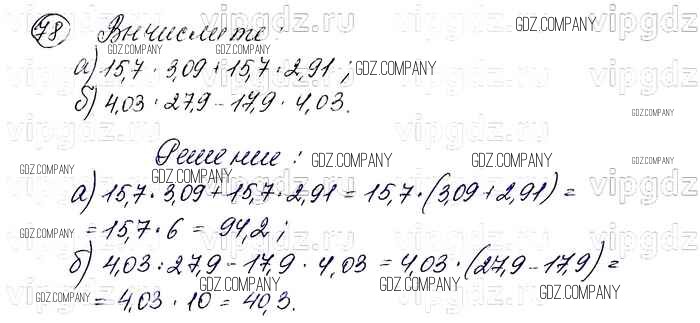 78 Вычислите:
а) 15,7 · 3,09 + 15,7 · 2,91;
б) 4,03 · 27,9 - 17,9 · 4,03.
Решение:
а) 15,7 · 3,09 + 15,7 · 2,91 = 15,7 · (3,09 + 2,91) =
= 15,7 · 6 = 94,2;
б) 4,03 · 27,9 - 17,9 · 4,03 = 4,03 · (27,9 - 17,9) =
= 4,03 · 10 = 40,3.
GDZ.COMPANY
vipgdz.ru